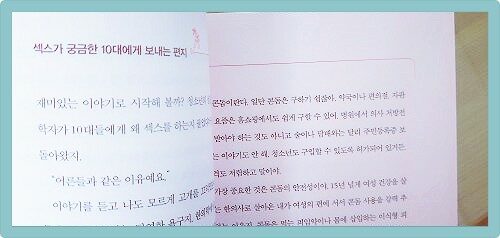 섹스가 궁금한 10대에게 보내는 편지
재미있는 이야기로 시작해 볼까? 청소년
학자가 10대들에게 왜 섹스를 하는지
돌아왔지.
"어른들과 같은 이유예요."
이야기를 듣고 나도 모르게 고개를
욕구지.
콘돔이란다. 일단 콘돔은 구하기 쉽잖아. 약국이나 편의점, 자판
요즘은 홈쇼핑에서도 쉽게 구할 수 있어. 병원에서 의사 처방전
받아야 하는 것도 아니고 술이나 담배와는 달리 주민등록증 보
는 이야기도 안 해. 청소년도 구입할 수 있도록 허가되어 있거든.
격도 저렴하고 말이야.
가장 중요한 것은 콘돔의 안전성이야. 15년 넘게 여성 건강을 살
는 한의사로 살아온 내가 여성의 편에 서서 콘돔 사용을 강력 추
이유지. 콘돔은 먹는 피임약이나 몸에 삽입하는 이식형 피